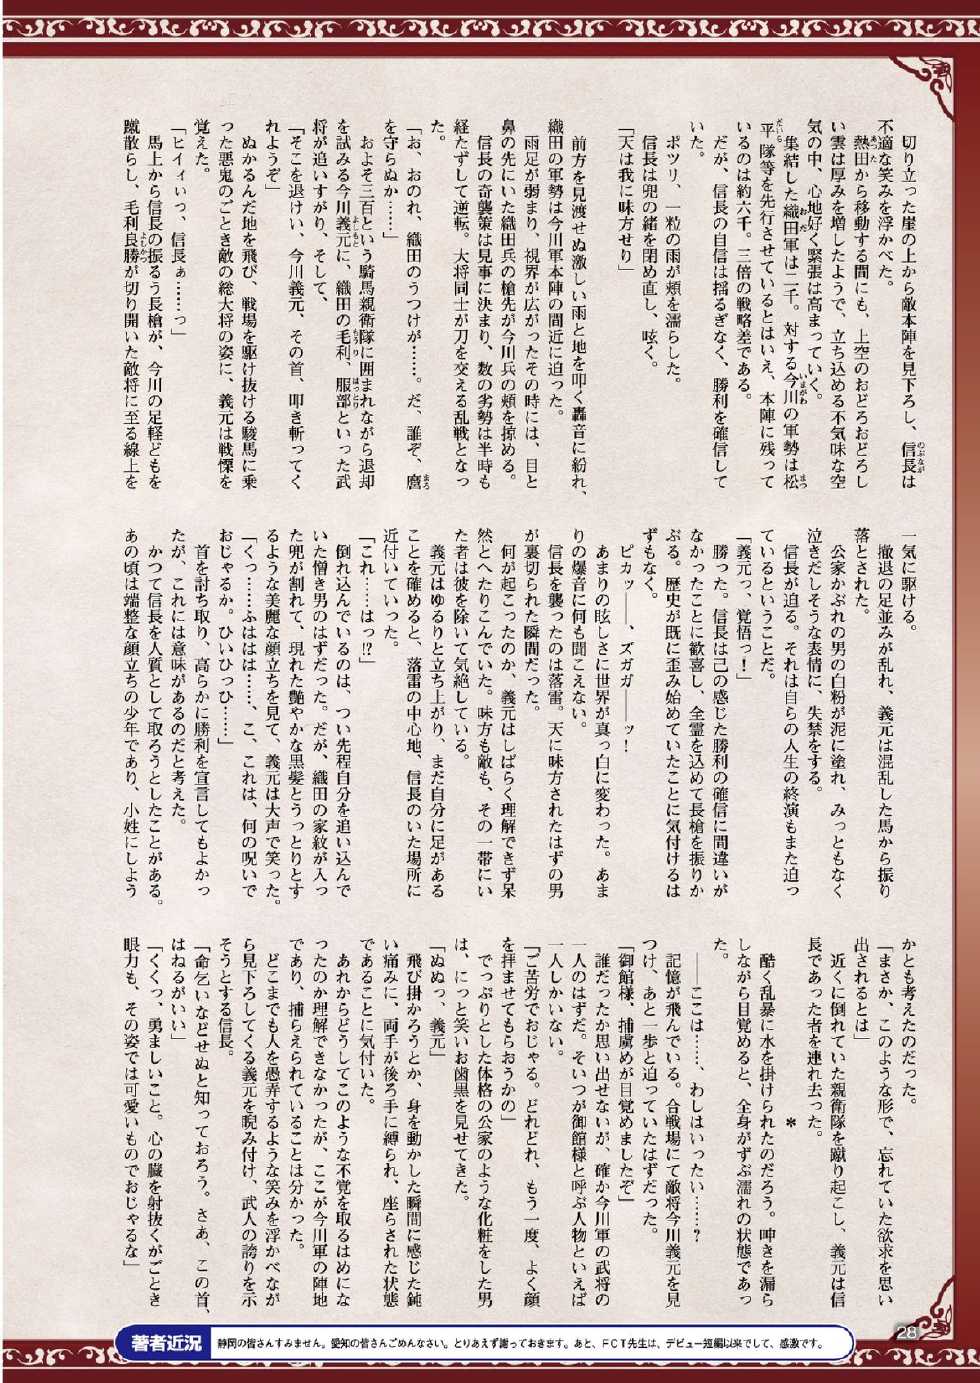 切り立った崖の上から敵本陣を見下ろし、信長は
不適な笑みを浮かべた。
熱田から移動する間にも、上空のおどろおどろし
い雲は厚みを増したようで、立ち込める不気味な空
気の中、心地好く緊張は高まっていく。
集結した織田軍は二千。対する今川の軍勢は松
平隊等を先行させているとはいえ、本陣に残って
いるのは約六千。三倍の戦略差である。
だが、信長の自信は揺るぎなく、勝利を確信して
いた。
ポツリ、一粒の雨が頬を濡らした。
信長は兜の緒を閉め直し、呟く。
「天は我に味方せり」
前方を見渡せぬ激しい雨と地を叩く轟音に紛れ、
織田の軍勢は今川軍本陣の間近に迫った。
雨足が弱まり、視界が広がったその時には、目と
鼻の先にいた織田兵の槍先が今川兵の頬を掠める。
信長の奇襲策は見事に決まり、数の劣勢は半時も
経たずして逆転。大将同士が刀を交える乱戦となっ
た。
「お、おのれ、織田のうつけが……。だ、誰ぞ、麿
を守らぬか……」
およそ三百という騎馬親衛隊に囲まれながら退却
を試みる今川義元に、織田の毛利、服部といった武
将が追いすがり、そして、
「そこを退けい、今川義元、その首、叩き斬ってく
れようぞ」
ぬかるんだ地を飛び、戦場を駆け抜ける駿馬に乗
った悪鬼のごとき敵の総大将の姿に、義元は戦慄を
覚えた。
「ヒィィいっ、信長ぁ……っ」
馬上から信長の振るう長槍が、今川の足軽どもを
蹴散らし、毛利良勝が切り開いた敵将に至る線上を
一気に駆ける。
撤退の足並みが乱れ、義元は混乱した馬から振り
落とされた。
公家かぶれの男の白粉が泥に塗れ、みっともなく
泣きだしそうな表情に、失禁をする。
信長が迫る。それは自らの人生の終演もまた迫っ
ているということだ。
「義元っ、覚悟っ！」
勝った。信長は己の感じた勝利の確信に間違いが
なかったことに歓喜し、全霊を込めて長槍を振りか
ぶる。歴史が既に歪み始めていたことに気付けるは
ずもなく。
ピカッ――、ズガガ――ッ！
あまりの眩しさに世界が真っ白に変わった。あま
りの爆音に何も聞こえない。
信長を襲ったのは落雷。天に味方されたはずの男
が裏切られた瞬間だった。
何が起こったのか、義元はしばらく理解できず呆
然とへたりこんでいた。味方も敵も、その一帯にい
た者は彼を除いて気絶している。
義元はゆるりと立ち上がり、まだ自分に足がある
ことを確めると、落雷の中心地、信長のいた場所に
近付いていった。
「これ……はっ⁉」
倒れ込んでいるのは、つい先程自分を追い込んで
いた憎き男のはずだった。だが、織田の家紋が入っ
た兜が割れて、現れた艶やかな黒髪とうっとりとす
るような美麗な顔立ちを見て、義元は大声で笑った。
「くっ……ふははは……、こ、これは、何の呪いで
おじゃるか。ひいひっひ……」
首を討ち取り、高らかに勝利を宣言してもよかっ
たが、これには意味があるのだと考えた。
かつて信長を人質として取ろうとしたことがある。
あの頃は端整な顔立ちの少年であり、小姓にしよう
かとも考えたのだった。
「まさか、このような形で、忘れていた欲求を思い
出されるとは」
近くに倒れていた親衛隊を蹴り起こし、義元は信
長であった者を連れ去った。
＊
酷く乱暴に水を掛けられたのだろう。呻きを漏ら
しながら目覚めると、全身がずぶ濡れの状態であっ
た。
――ここは……、わしはいったい……？
記憶が飛んでいる。合戦場にて敵将今川義元を見
つけ、あと一歩と迫っていたはずだった。
「御館様、捕虜めが目覚めましたぞ」
誰だったか思い出せないが、確か今川軍の武将の
一人のはずだ。そいつが御館様と呼ぶ人物といえば
一人しかいない。
「ご苦労でおじゃる。どれどれ、もう一度、よく顔
を拝ませてもらおうかの」
でっぷりとした体格の公家のような化粧をした男
は、にっと笑いお歯黒を見せてきた。
「ぬぬっ、義元」
飛び掛かろうとか、身を動かした瞬間に感じた鈍
い痛みに、両手が後ろ手に縛られ、座らされた状態
であることに気付いた。
あれからどうしてこのような不覚を取るはめにな
ったのか理解できなかったが、ここが今川軍の陣地
であり、捕らえられていることは分かった。
どこまでも人を愚弄するような笑みを浮かべなが
ら見下ろしてくる義元を睨み付け、武人の誇りを示
そうとする信長。
「命乞いなどせぬと知っておろう。さあ、この首、
はねるがいい」
「くくっ、勇ましいこと。心の臓を射抜くがごとき
眼力も、その姿では可愛いものでおじゃるな」
28
著者近況
静岡の皆さんすみません。愛知の皆さんごめんなさい。とりあえず謝っておきます。あと、FCT先生は、デビュー短編以来でして、感激です。